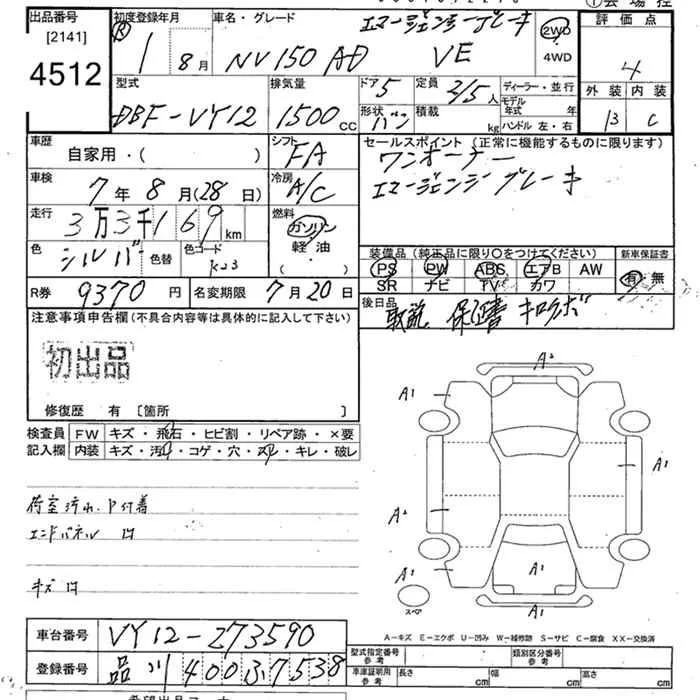 出品番号 初度登録年月 車名・グレード エマージェンシーブレーキ 2WD ①会場控
[2141] R 1 8月 NV150 AD VE 4WD 評価点
4512 4
型式 排気量 ドア 5 定員 2/5人 ディーラー・並行 外装 内装
DBF-VY12 1500cc 形状 バン 積載 kg モデル年式 年 B C
ハンドル 左・右
車歴 シフト セールスポイント(正常に機能するものに限ります)
自家用・( ) FA ワンオーナー
車検 冷房 エマージェンシーブレーキ
7年8月(28日) A/C
走行 3万3千169km 燃料 ガソリン
色 シルバー 色替 色コード K23 軽・油 ( )
装備品(純正品に限り○をつけてください) 新車保証書
PS PW ABS エアB AW 有・無
SR ナビ TV カワ
R券 9370円 名変期限 7月20日 後日品
取説 保証書 キロクボ
注意事項申告欄(不具合内容等は具体的に記入して下さい)
初出品
修復歴 有 [箇所 ]
検査員 FW キズ・飛石・ヒビ割・リペア跡・×要
記入欄 内装 キズ・汚れ・コゲ・穴・スレ・キレ・破レ
A2
A1
A1
A2
A1 A1 A1
スペア A1
荷室汚れ、P付着
エンドパネル凹
キズ凹
A-キズ E-エクボ U-凹み W-補修跡 S-サビ C-腐食 XX-交換済
車台番号 VY12-273590
登録番号 品川400ふ7538
型式指定番号 参考 類別区分番号 参考
車庫証明用 参考 長さ cm 幅 cm 高さ cm